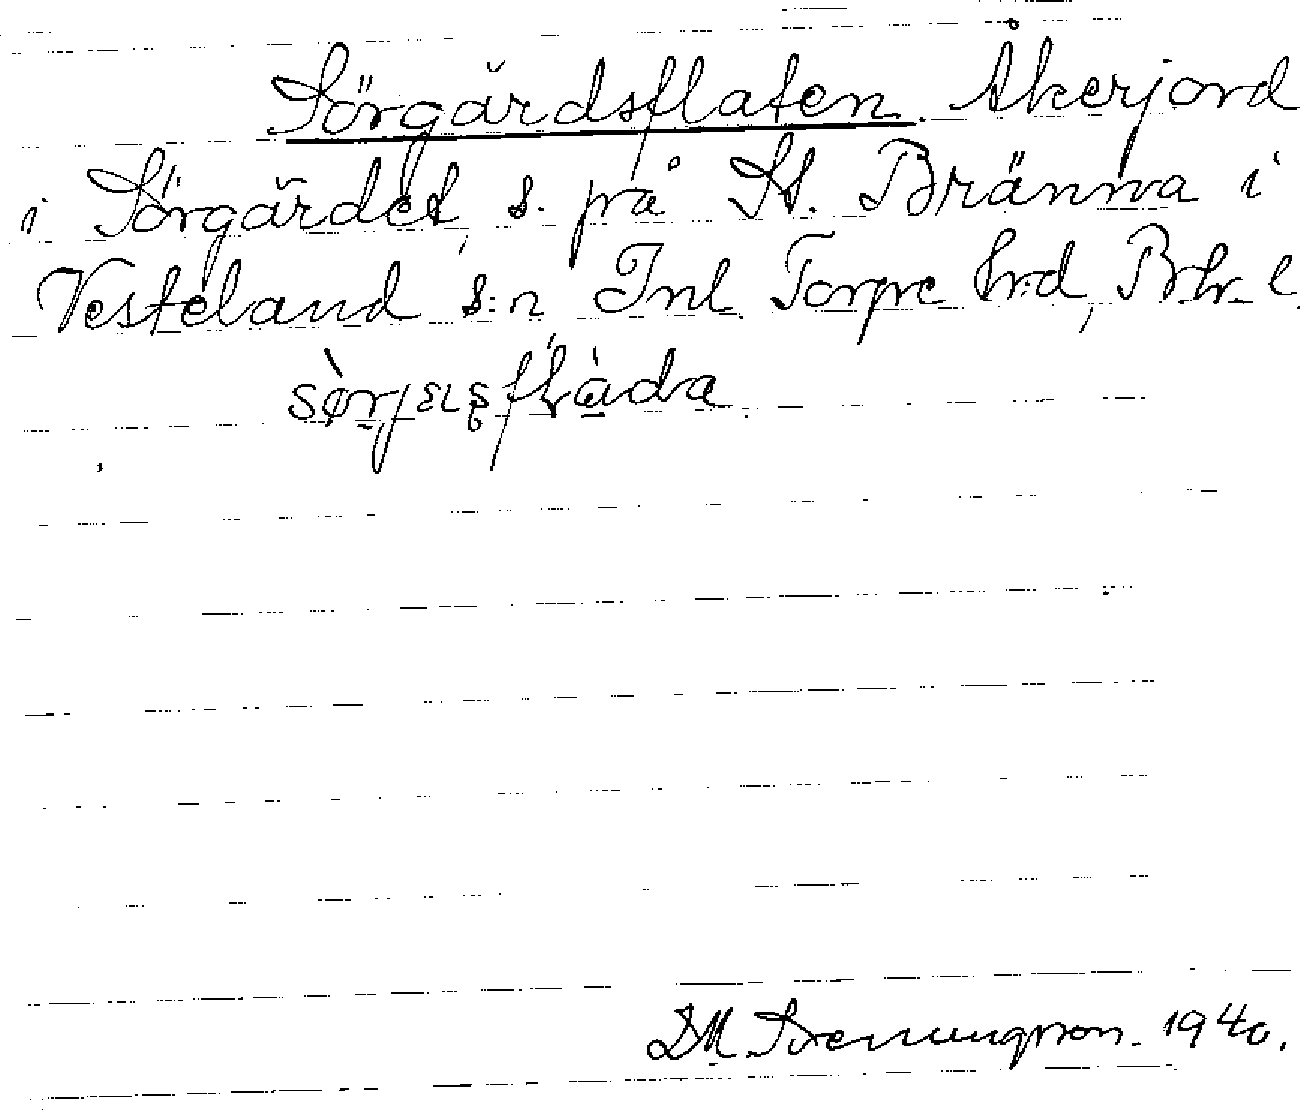 Sörgärdsflaten. Åkerjord
i Sörgärdet, s. på St. Bränna i
Vesteland s:n Inl. Torpe hrd, Bhr. l.
D.M. Svenungsson. 1940.